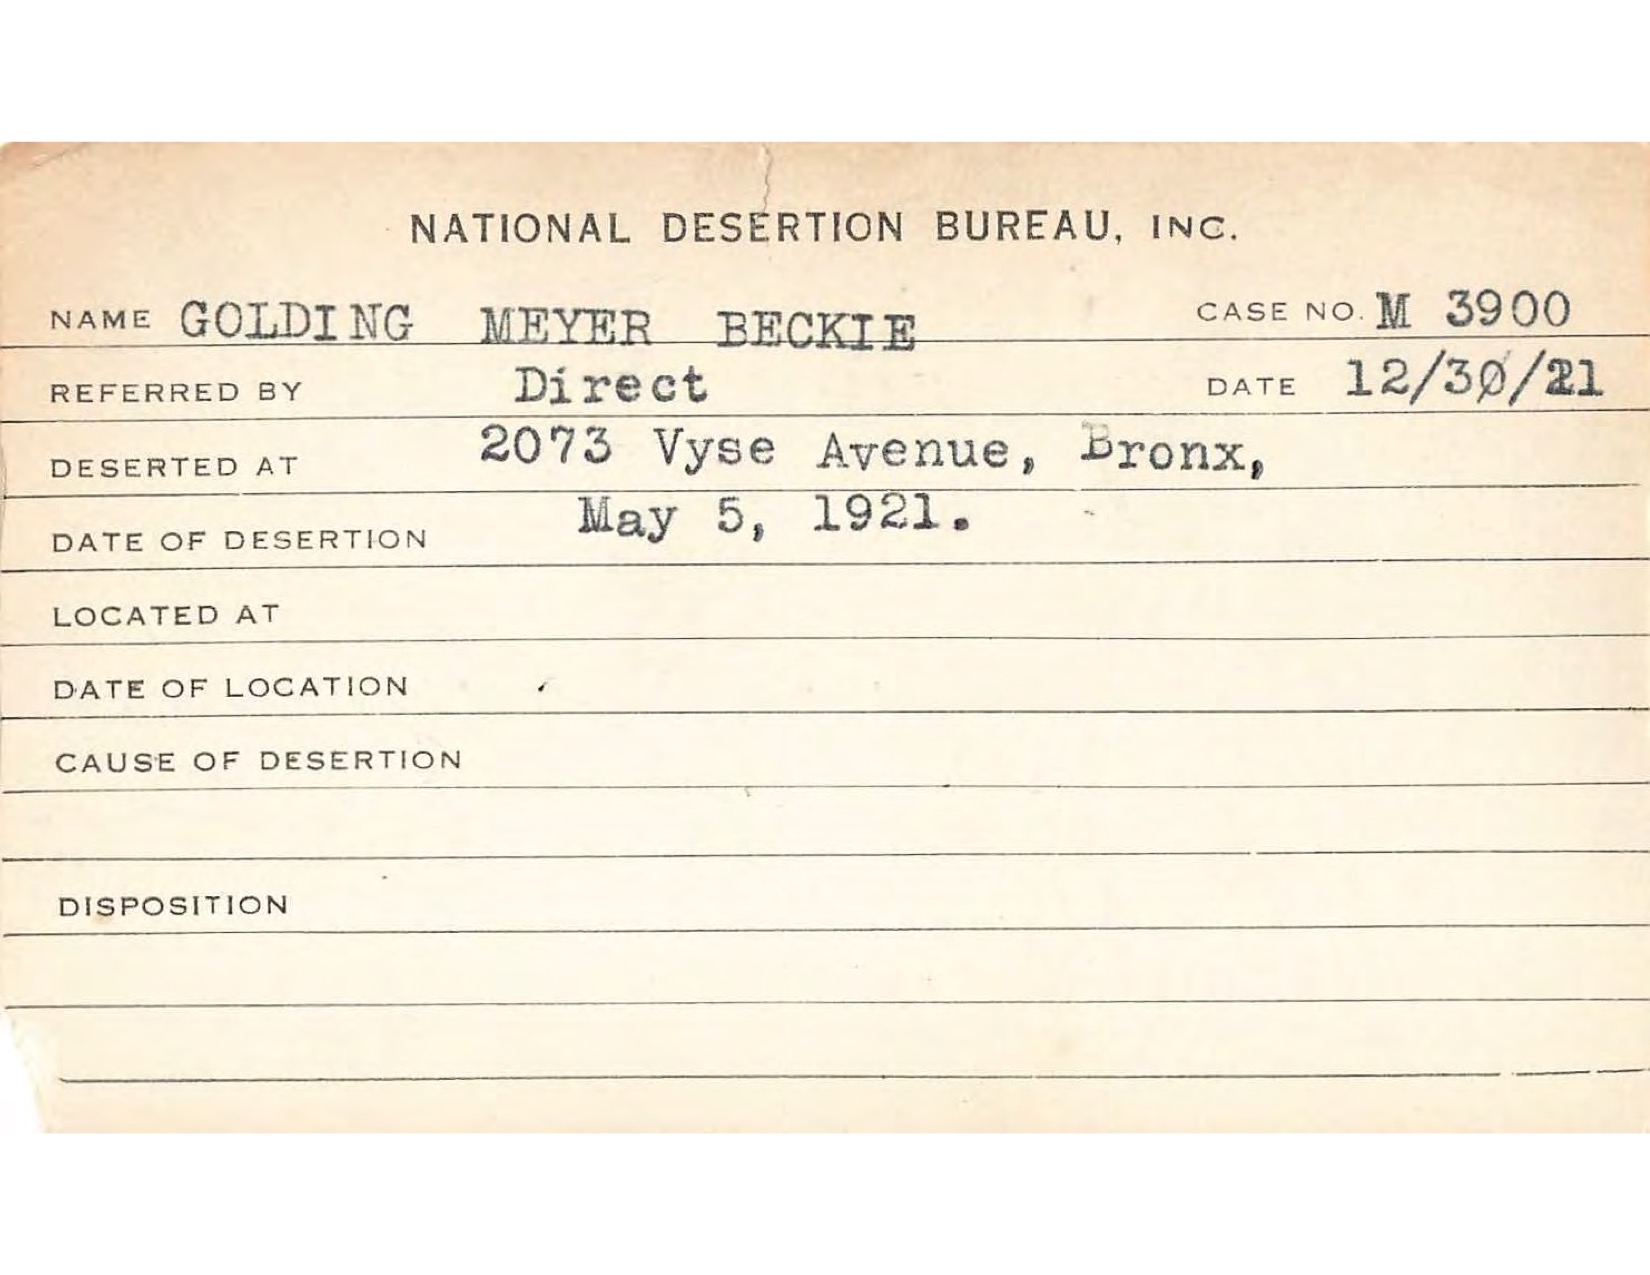 NATIONAL DESERTION BUREAU, INC.
NAME GOLDING MEYER BECKIE CASE NO. M 3900
REFERRED BY Direct DATE 12/30/21
DESERTED AT 2073 Vyse Avenue, Bronx,
DATE OF DESERTION May 5, 1921.
LOCATED AT
DATE OF LOCATION
CAUSE OF DESERTION
DISPOSITION